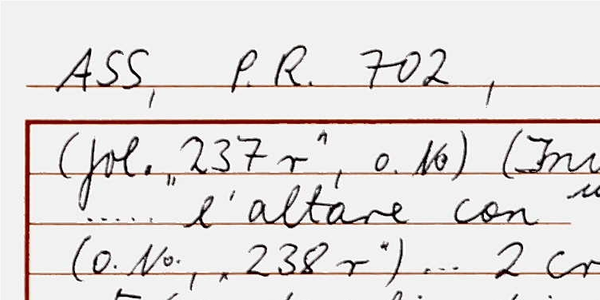 ASS, P.R. 702,
(fol. „237 r“, o. No) (Inv
..... l'altare con
(o. No., „238 r“) ... 2 cr